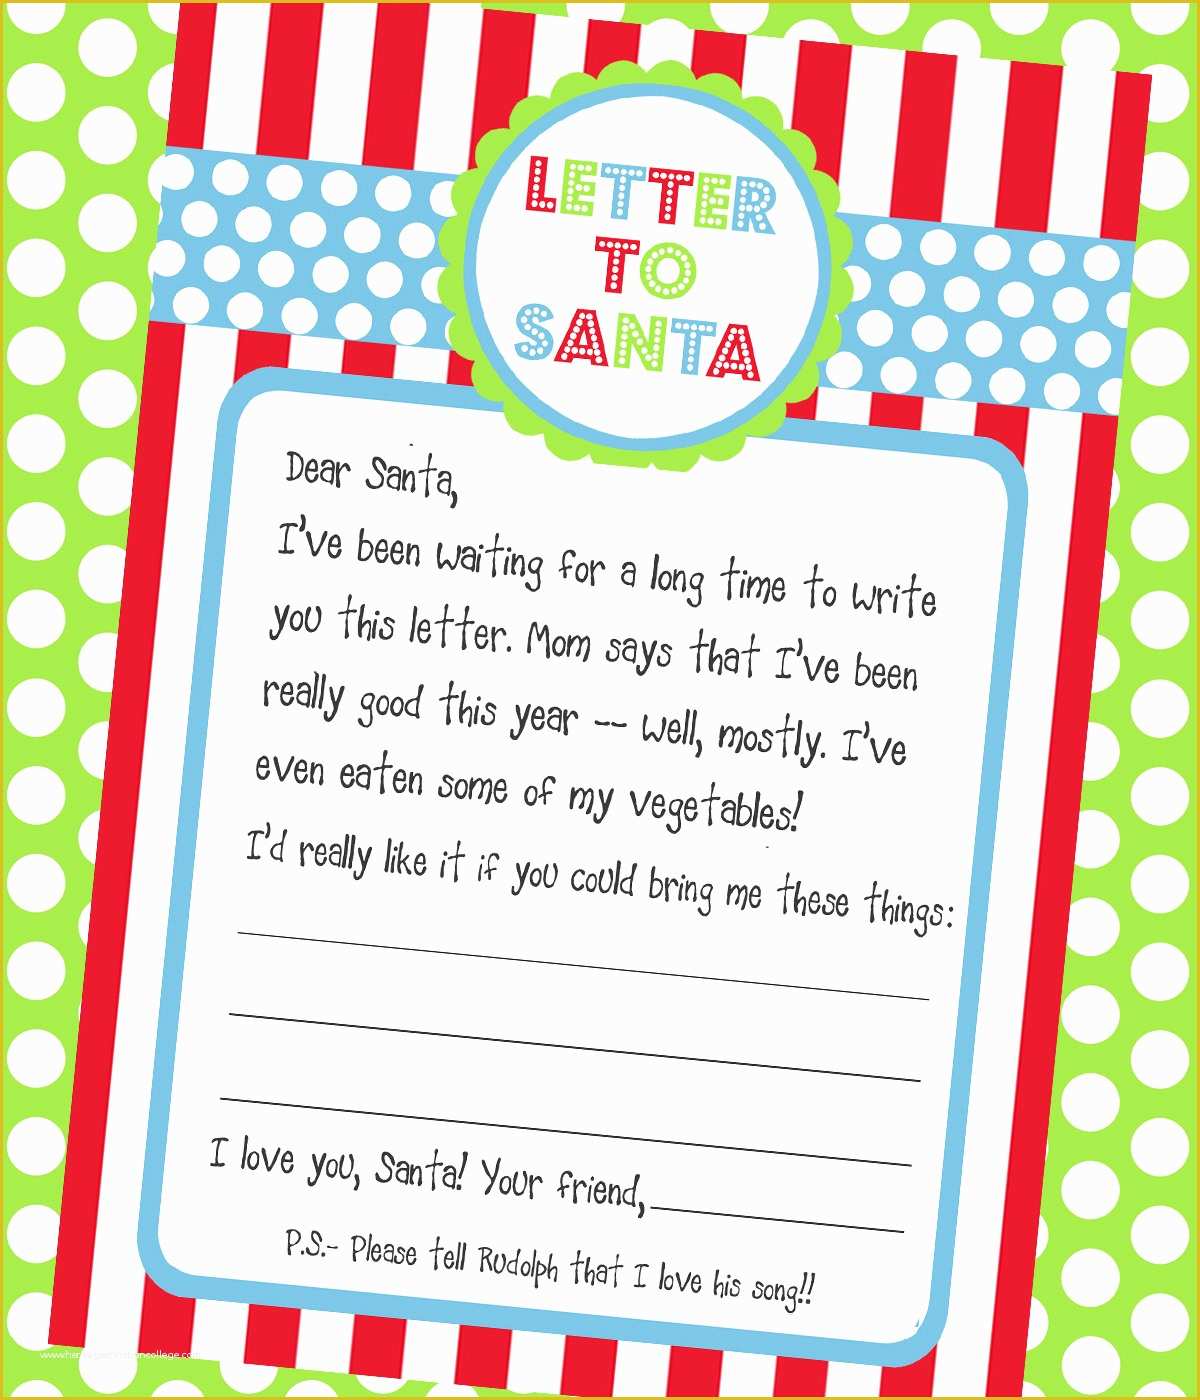 LETTER
TO
SANTA
Dear Santa,
I've been waiting for a long time to write
you this letter. Mom says that I've been
really good this year -- well, mostly. I've
even eaten some of my vegetables!
I'd really like it if you could bring me these things:
I love you, Santa! Your friend,
P.S.- Please tell Rudolph that I love his song!!